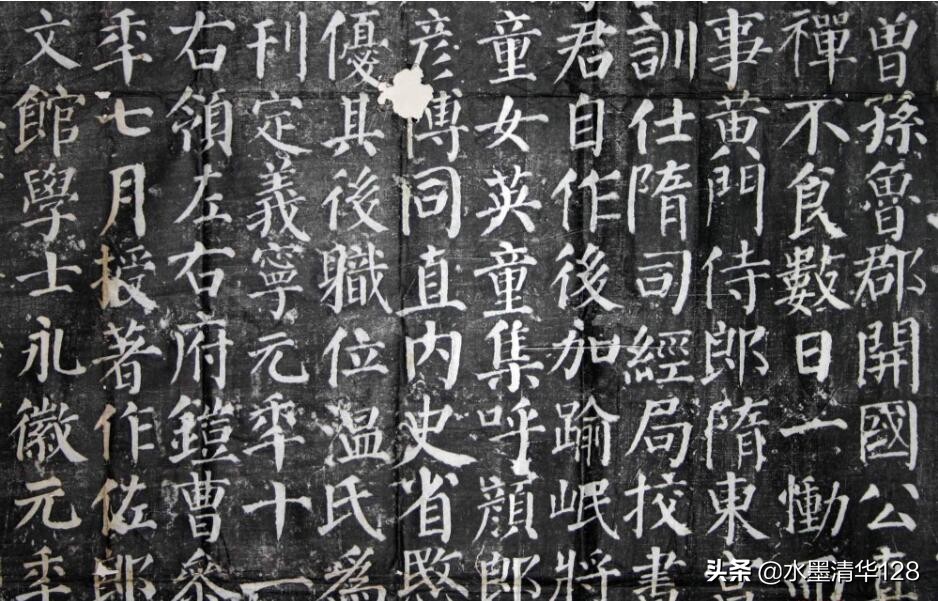 曾孫魯郡開國公真
禪不食數日一慟而
事黃門侍郎隋東宮
訓仕隋司經局校書
君自作後加踰岷將
童女英童集呼顏郎
彥博同直内史省愍
優其後職位温氏爲
刊定義寧元年十一
右領左右府鎧曹參
年七月授著作佐郎
文館學士永徽元年
头条 @水墨清华128